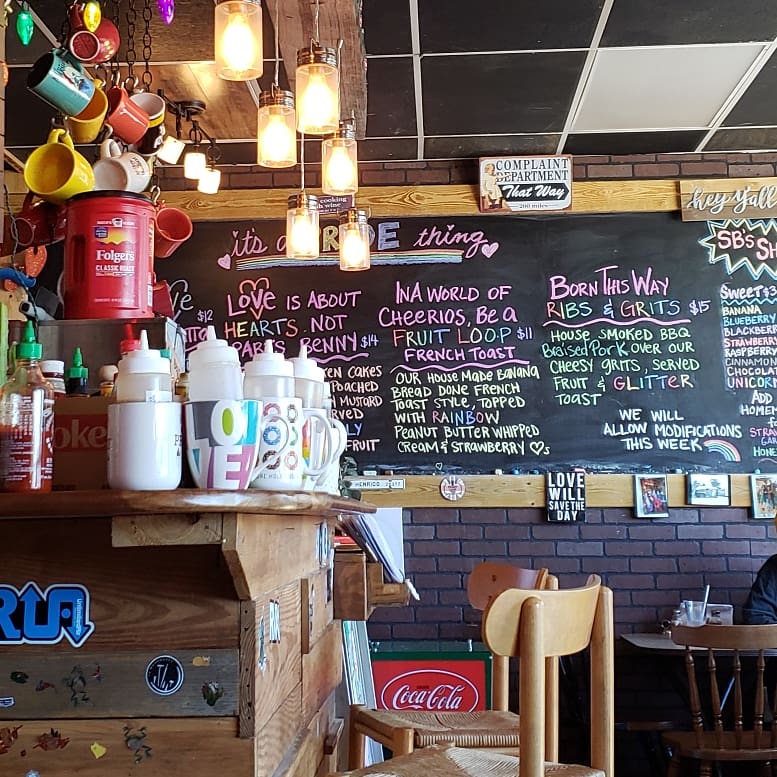 COMPLAINT
DEPARTMENT
That Way
200 miles
hey Y'all
cooking
wine
it's a PRIDE thing
SB's
$12
LOVE IS ABOUT
HEARTS NOT
BENNY $14
CAKES
MUSTARD
FRUIT
IN A WORLD OF
CHEERIOS, BE A
FRUIT LOOP $11
FRENCH TOAST
OUR HOUSE MADE BANANA
BREAD DONE FRENCH
TOAST STYLE, TOPPED
WITH RAINBOW
PEANUT BUTTER WHIPPED
CREAM & STRAWBERRY
BORN THIS WAY
RIBS & GRITS $15
HOUSE SMOKED BBQ
BRAISED PORK OVER OUR
CHEESY GRITS, SERVED
FRUIT & GLITTER
TOAST
WE WILL
ALLOW MODIFICATIONS
THIS WEEK
SWEET $3
BANANA
BLUEBERRY
BLACKBERRY
STRAWBERRY
CINNAMON
ADD
Folgers
CLASSIC ROAST
LOVE
LOVE
WILL
SAVE THE
DAY
RVA
Coca-Cola